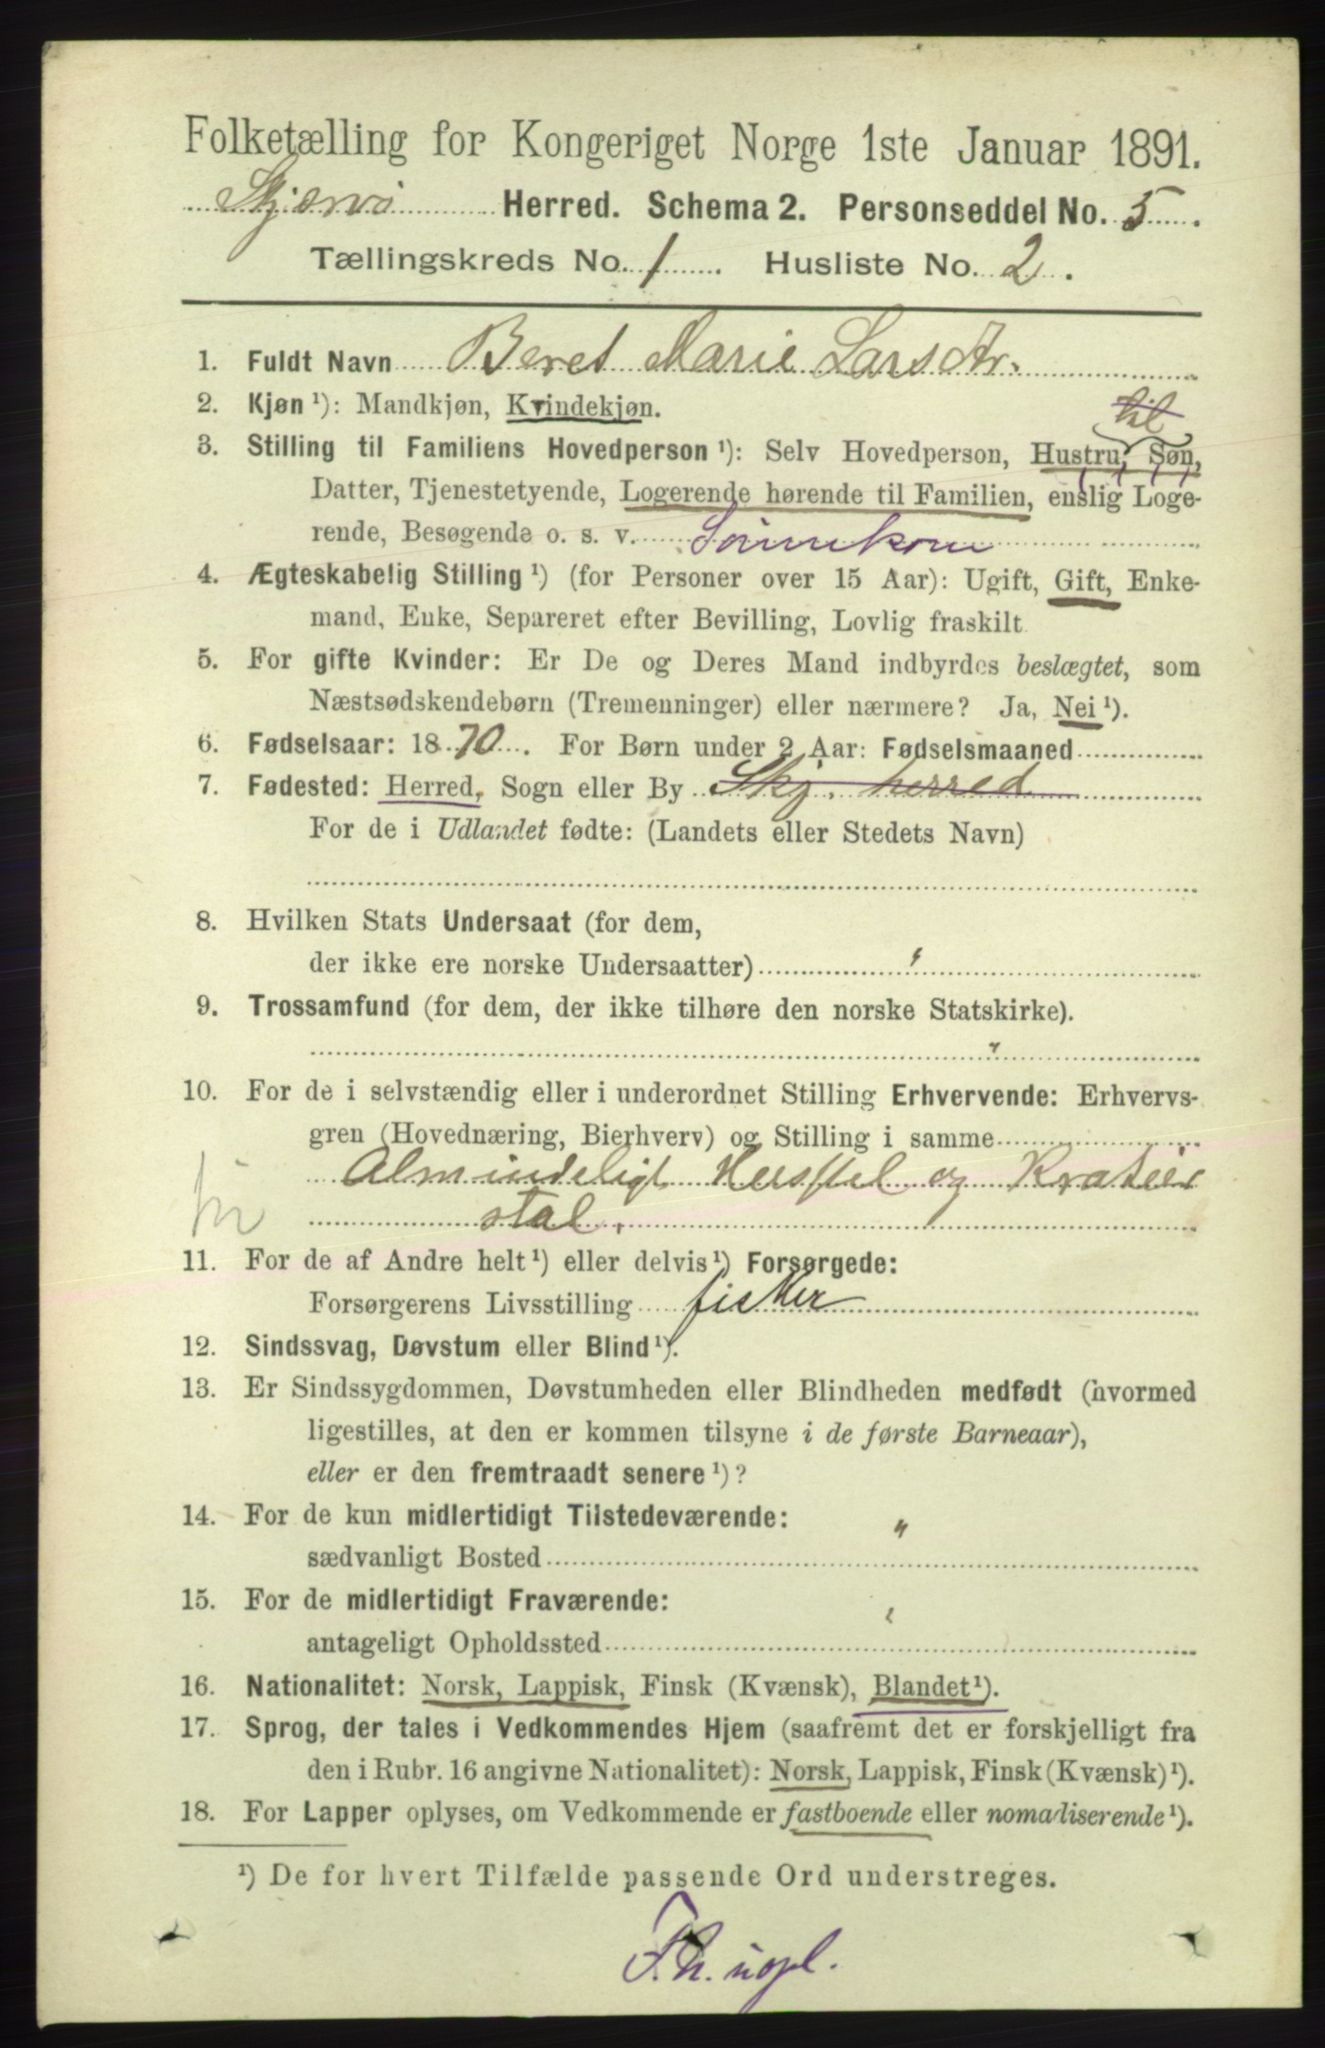 Folketælling for Kongeriget Norge 1ste Januar 1891.
Skjærvø Herred. Schema 2. Personseddel No. 5.
Tællingskreds No. 1. Husliste No. 2.
1. Fuldt Navn Beret Marie Larsdtr.
2. Kjøn ¹): Mandkjøn, Kvindekjøn.
til
3. Stilling til Familiens Hovedperson ¹): Selv Hovedperson, Hustru, Søn,
Datter, Tjenestetyende, Logerende hørende til Familien, enslig Loge-
rende, Besøgende o. s. v. Sønnekone
4. Ægteskabelig Stilling ¹) (for Personer over 15 Aar): Ugift, Gift, Enke-
mand, Enke, Separeret efter Bevilling, Lovlig fraskilt
5. For gifte Kvinder: Er De og Deres Mand indbyrdes beslægtet, som
Næstsødskendebørn (Tremenninger) eller nærmere? Ja, Nei ¹).
6. Fødselsaar: 1870. For Børn under 2 Aar: Fødselsmaaned
7. Fødested: Herred, Sogn eller By Skj. herred
For de i Udlandet fødte: (Landets eller Stedets Navn)
8. Hvilken Stats Undersaat (for dem,
der ikke ere norske Undersaatter) "
9. Trossamfund (for dem, der ikke tilhøre den norske Statskirke).
"
10. For de i selvstændig eller i underordnet Stilling Erhvervende: Erhvervs-
gren (Hovednæring, Bierhverv) og Stilling i samme
Almindeligt Husstel og Krateier
stal.
11. For de af Andre helt ¹) eller delvis ¹) Forsørgede:
Forsørgerens Livsstilling fisker
12. Sindssvag, Døvstum eller Blind ¹).
13. Er Sindssygdommen, Døvstumheden eller Blindheden medfødt (hvormed
ligestilles, at den er kommen tilsyne i de første Barneaar),
eller er den fremtraadt senere ¹)?
14. For de kun midlertidigt Tilstedeværende: "
sædvanligt Bosted
15. For de midlertidigt Fraværende: "
antageligt Opholdssted
16. Nationalitet: Norsk, Lappisk, Finsk (Kvænsk), Blandet ¹).
17. Sprog, der tales i Vedkommendes Hjem (saafremt det er forskjelligt fra
den i Rubr. 16 angivne Nationalitet): Norsk, Lappisk, Finsk (Kvænsk) ¹).
18. For Lapper oplyses, om Vedkommende er fastboende eller nomadiserende ¹).
¹) De for hvert Tilfælde passende Ord understreges.
F.n. uopl.